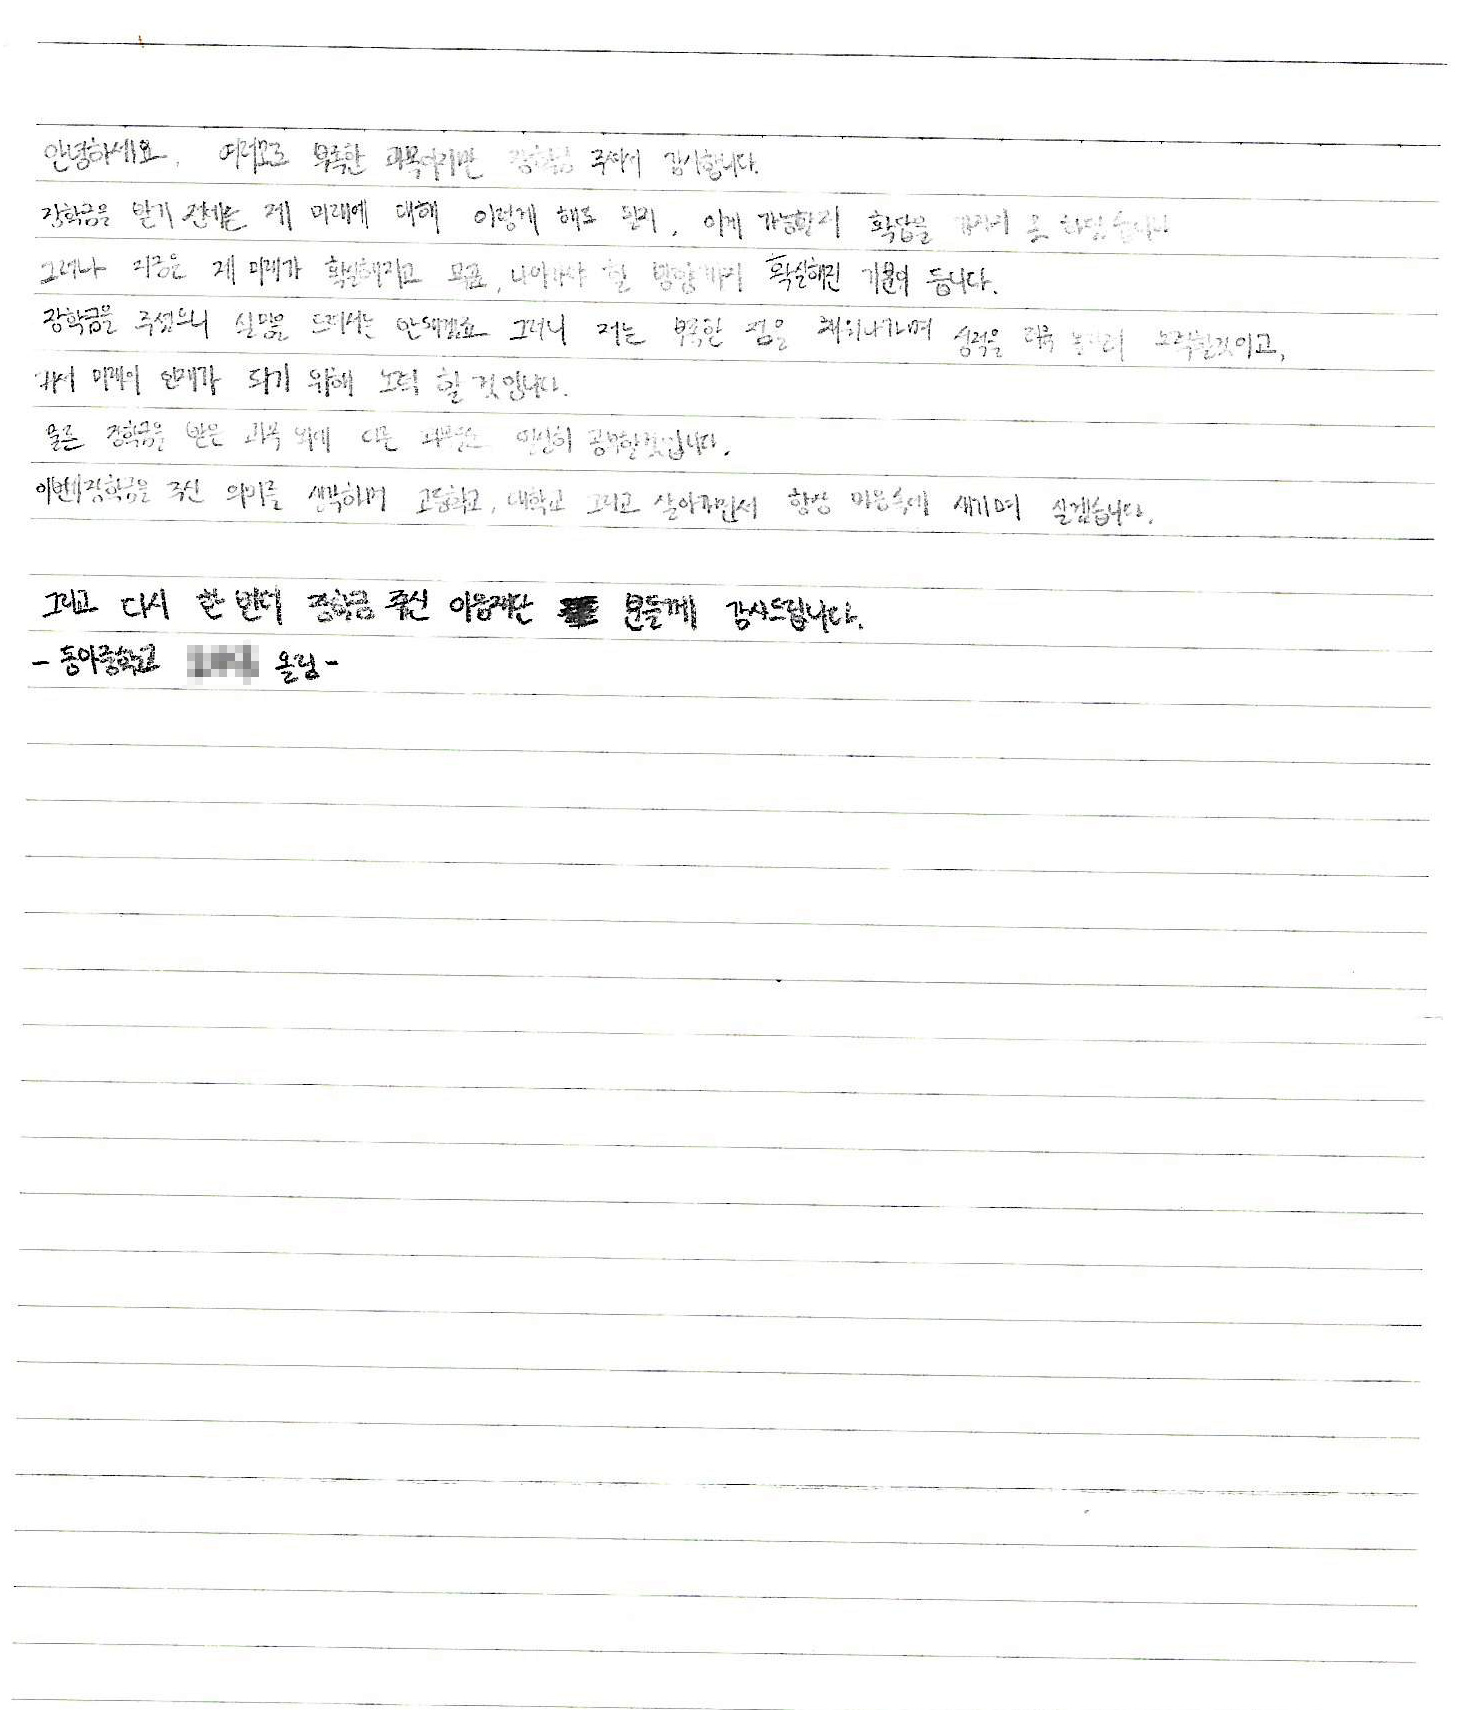 안녕하세요, 여러모로 부족한 과목이지만 장학금 주셔서 감사합니다.
장학금을 받기 전에는 제 미래에 대해 이렇게 해도 될지, 이게 가능할지 확답을 가지지 못 하였습니다
그러나 지금은 제 미래가 확실해지고 목표, 나아가야 할 방향까지 확실해진 기분이 듭니다.
장학금을 주셨으니 실망을 드려서는 안돼겠죠 그러니 저는 부족한 점을 채워나가며 성적을 더욱 높이려 노력할것이고,
미래의 인재가 되기 위해 노력 할 것입니다.
물론 장학금을 받은 과목 외에 다른 과목들도 열심히 공부할것입니다.
이번에장학금을 주신 의미를 생각하며 고등학교, 대학교 그리고 살아가면서 항상 마음속에 새기며 살겠습니다.
그리고 다시 한 번더 장학금 주신 이웅재단 분들께 감사드립니다.
- 동아중학교 올림 -